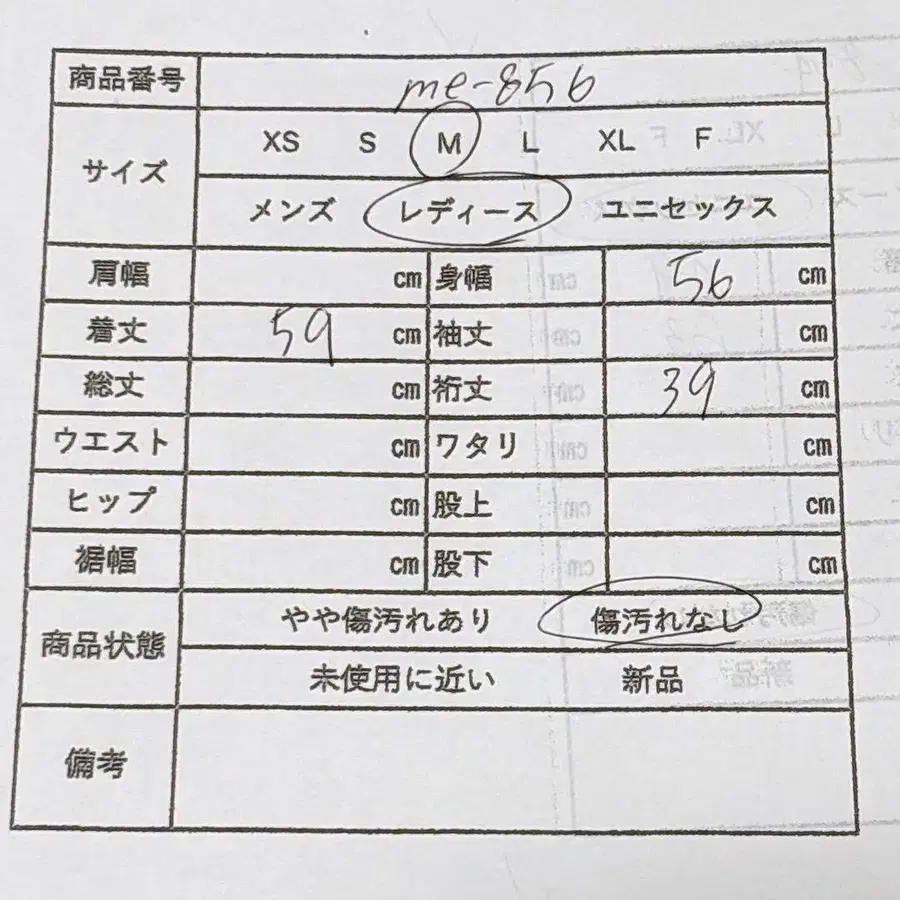 商品番号 me-856
サイズ XS S M L XL F
メンズ レディース ユニセックス
肩幅 cm 身幅 56 cm
着丈 59 cm 袖丈 cm
総丈 cm 裄丈 39 cm
ウエスト cm ワタリ cm
ヒップ cm 股上 cm
裾幅 cm 股下 cm
商品状態 やや傷汚れあり 傷汚れなし
未使用に近い 新品
備考